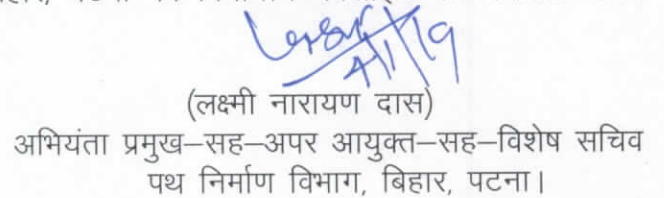 4/1/19
(लक्ष्मी नारायण दास)
अभियंता प्रमुख–सह–अपर आयुक्त–सह–विशेष सचिव
पथ निर्माण विभाग, बिहार, पटना।